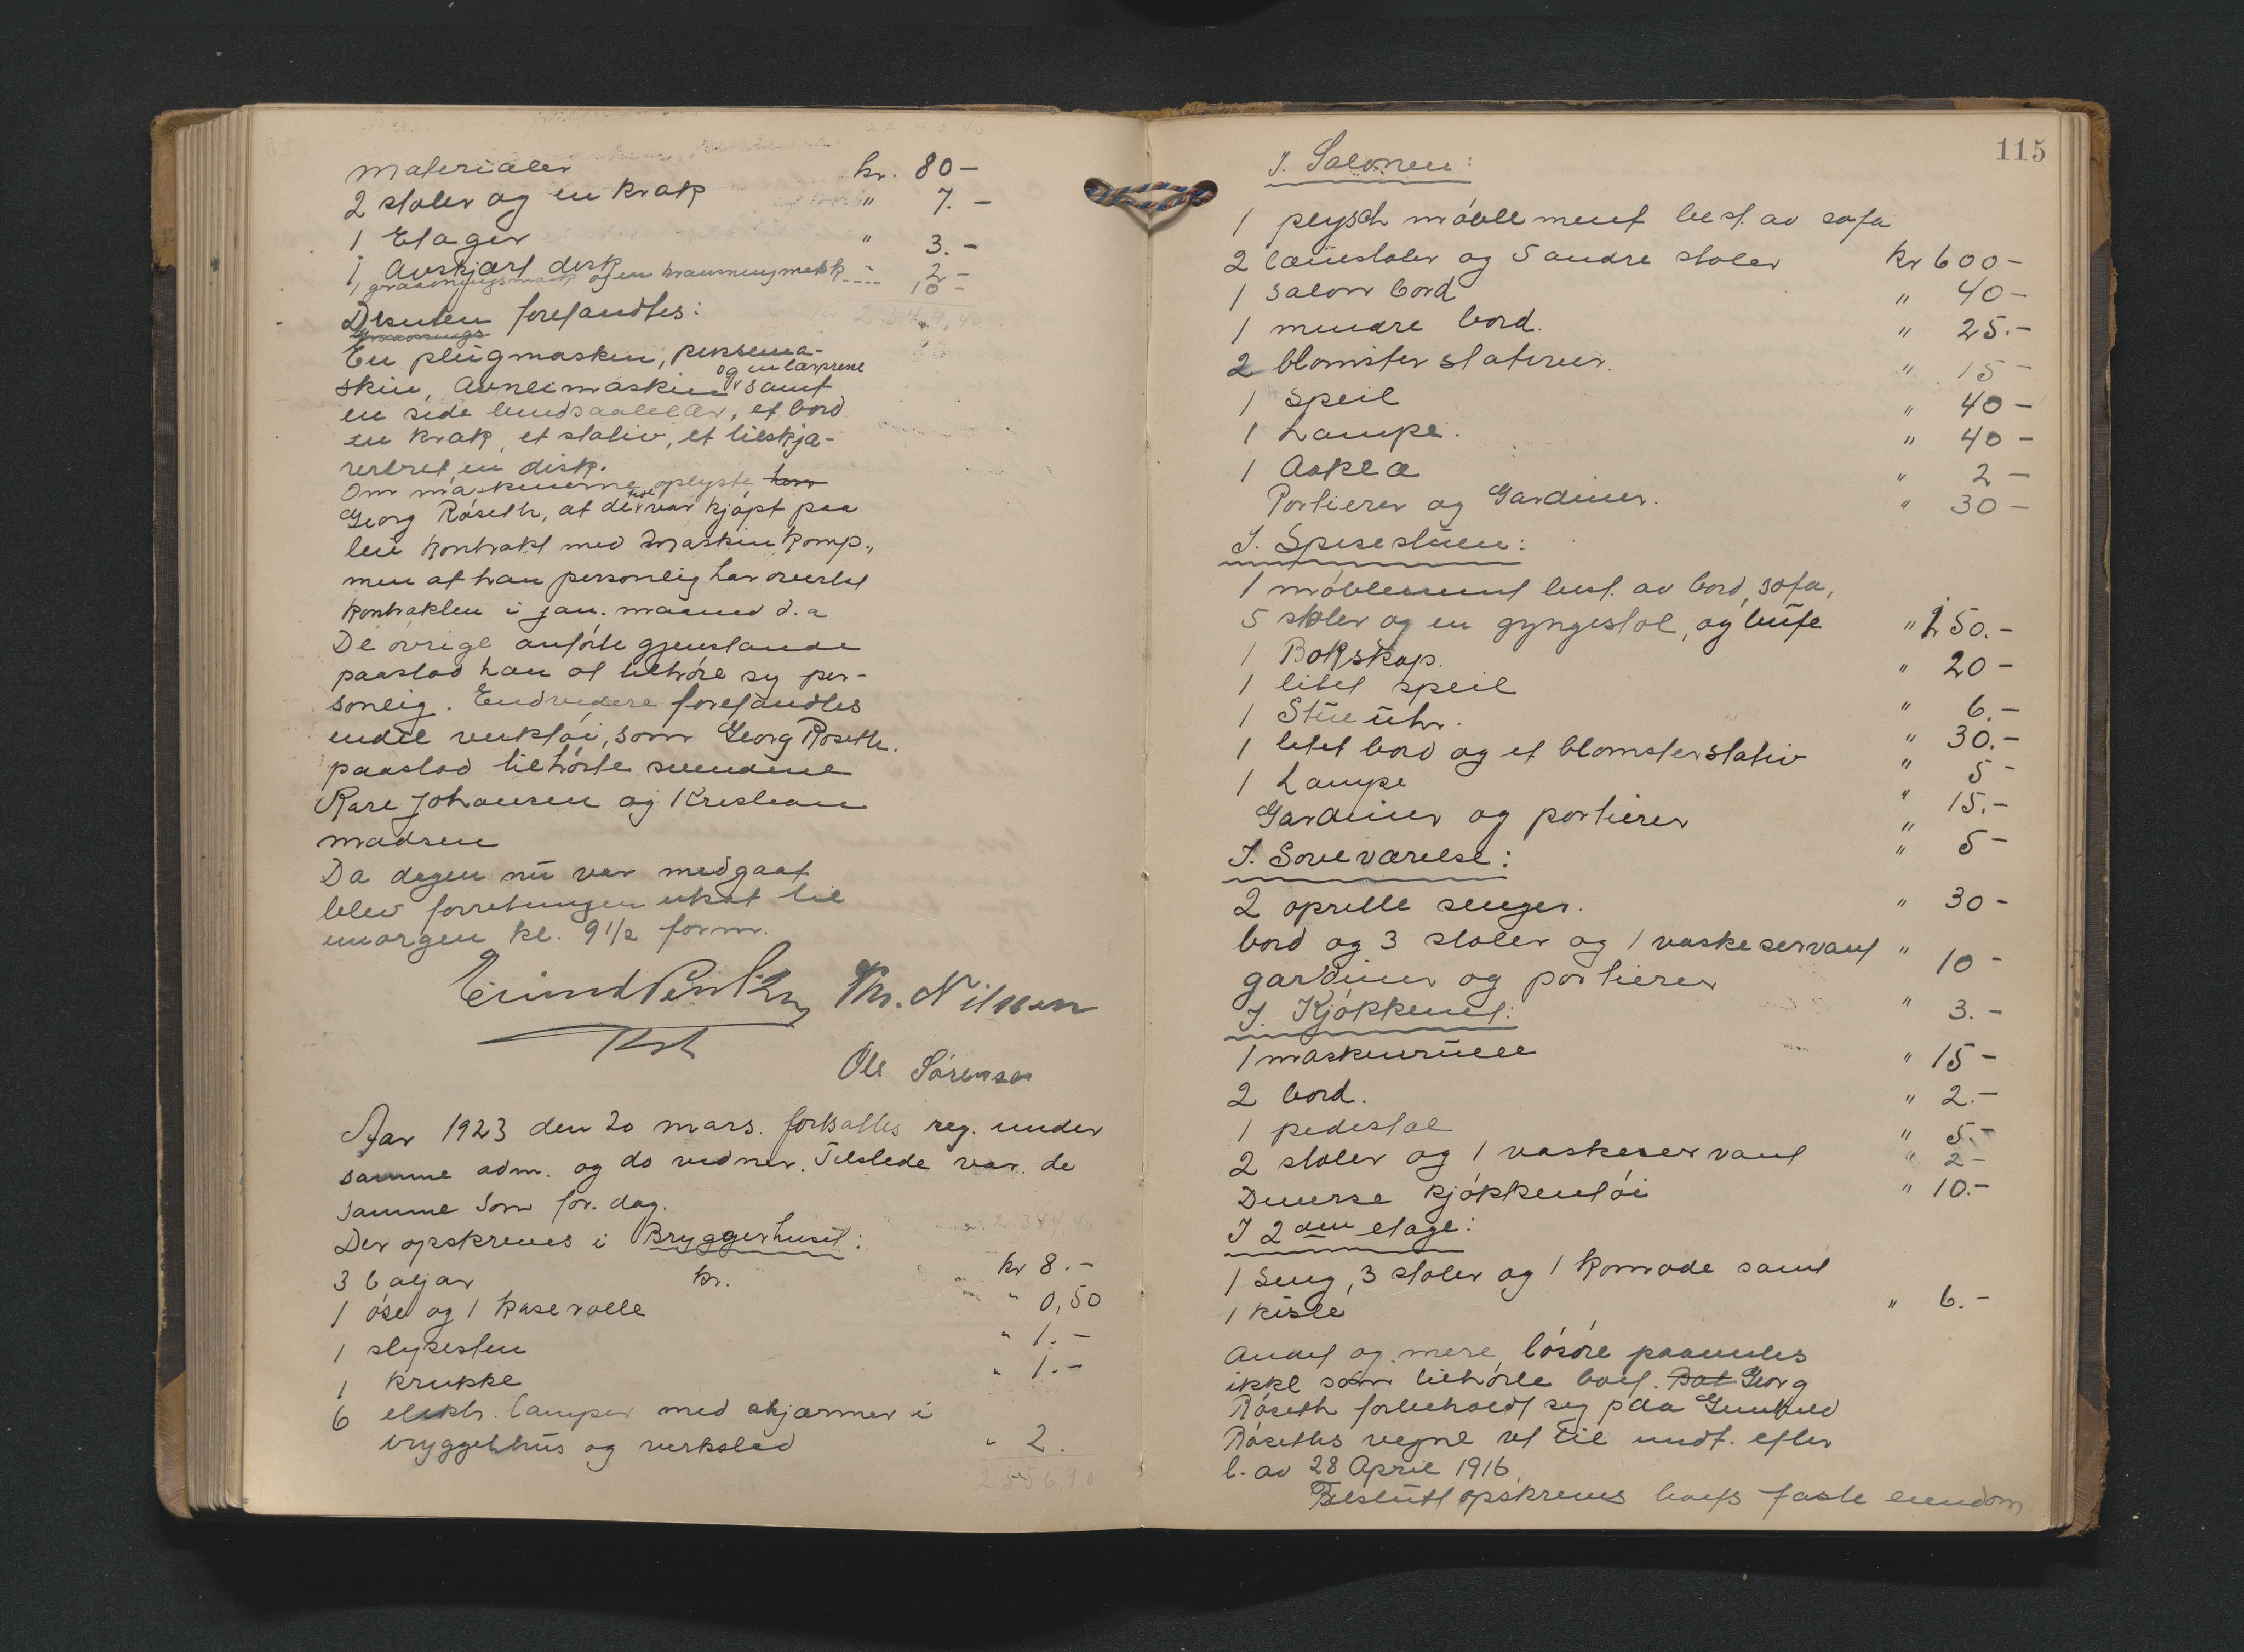 materialer kr. 80-
2 stoler og en krak " 7.-
1 Etager " 3.-
1 Avskjært disk " 2-
1 maskin og en 10-
Desuten forefandtes:
En plugmaskin, persema-
skin, og en lærprene
en side bundsaalelær, et bord
en krak, et stativ, et tilskjæ-
rerbret en disk.
Om maskinerne oplyste herr
Georg Röseth, at det var kjöpt paa
leie kontrakt med Maskin Komp.,
men at han personlig har overtat
kontrakten i jan. maaned d.a
De övrige anförte gjenstande
paastod han at tilhöre sig per-
sonlig. Endvidere forefandtes
endel verktöi, som Georg Röseth.
paastod tilhörte svendene
Kare Johansen og Kristian
Madsen
Da dagen nu var medgaat
blev forretningen utsat til
imorgen kl. 9 1/2 form.
Th. Nilssen
Ole Sörensen
Aar 1923 den 20 mars. fortsattes reg. under
samme adm. og do vidner. Tilstede var de
samme som for. dag.
Der opskreves i Bryggerhuset:
3 baljer kr. kr 8.-
1 öse og 1 kaserolle " 0,50
1 slipesten " 1.-
1 krukke " 1.-
6 elektr. lamper med skjærmer i
bryggehus og verksted " 2.
2356,90
115
I. Salonen:
1 plysch möblement best. av sofa
2 lænestoler og 5 andre stoler kr 600-
1 salon bord " 40-
1 mindre bord. " 25.-
2 blomster stativer. " 15-
1 Speil " 40-
1 Lampe. " 40-
1 " 2-
Portierer og Gardiner. " 30-
I. Spisestuen:
1 möblement best. av bord, sofa,
5 stoler og en gyngestol, og bufe " 250.-
1 Bokskap. " 20-
1 litet speil " 6.-
1 Stueuhr. " 30.-
1 litet bord og et blomsterstativ " 5-
1 Lampe " 15.-
Gardiner og portierer " 5-
I. Soveværelse:
2 oprette senger. " 30-
bord og 3 stoler og 1 vaskeservant " 10-
gardiner og portierer " 3.-
I. Kjökkenet:
1 maskinrulle " 15-
2 bord. " 2.-
1 pedestal " 5.-
2 stoler og 1 vaskeservant " 2-
Diverse kjökkentöi " 10.-
I 2den etage:
1 Seng, 3 stoler og 1 Komode samt
1 kiste " 6.-
Andet og mere lösöre paavistes
ikke som tilhörte boet. Bat Georg
Röseth forbeholdt seg paa Gunhild
Röseths vegne ret til undt. efter
l. av 28 April 1916.
Tilslut opskreves boets faste eiendom